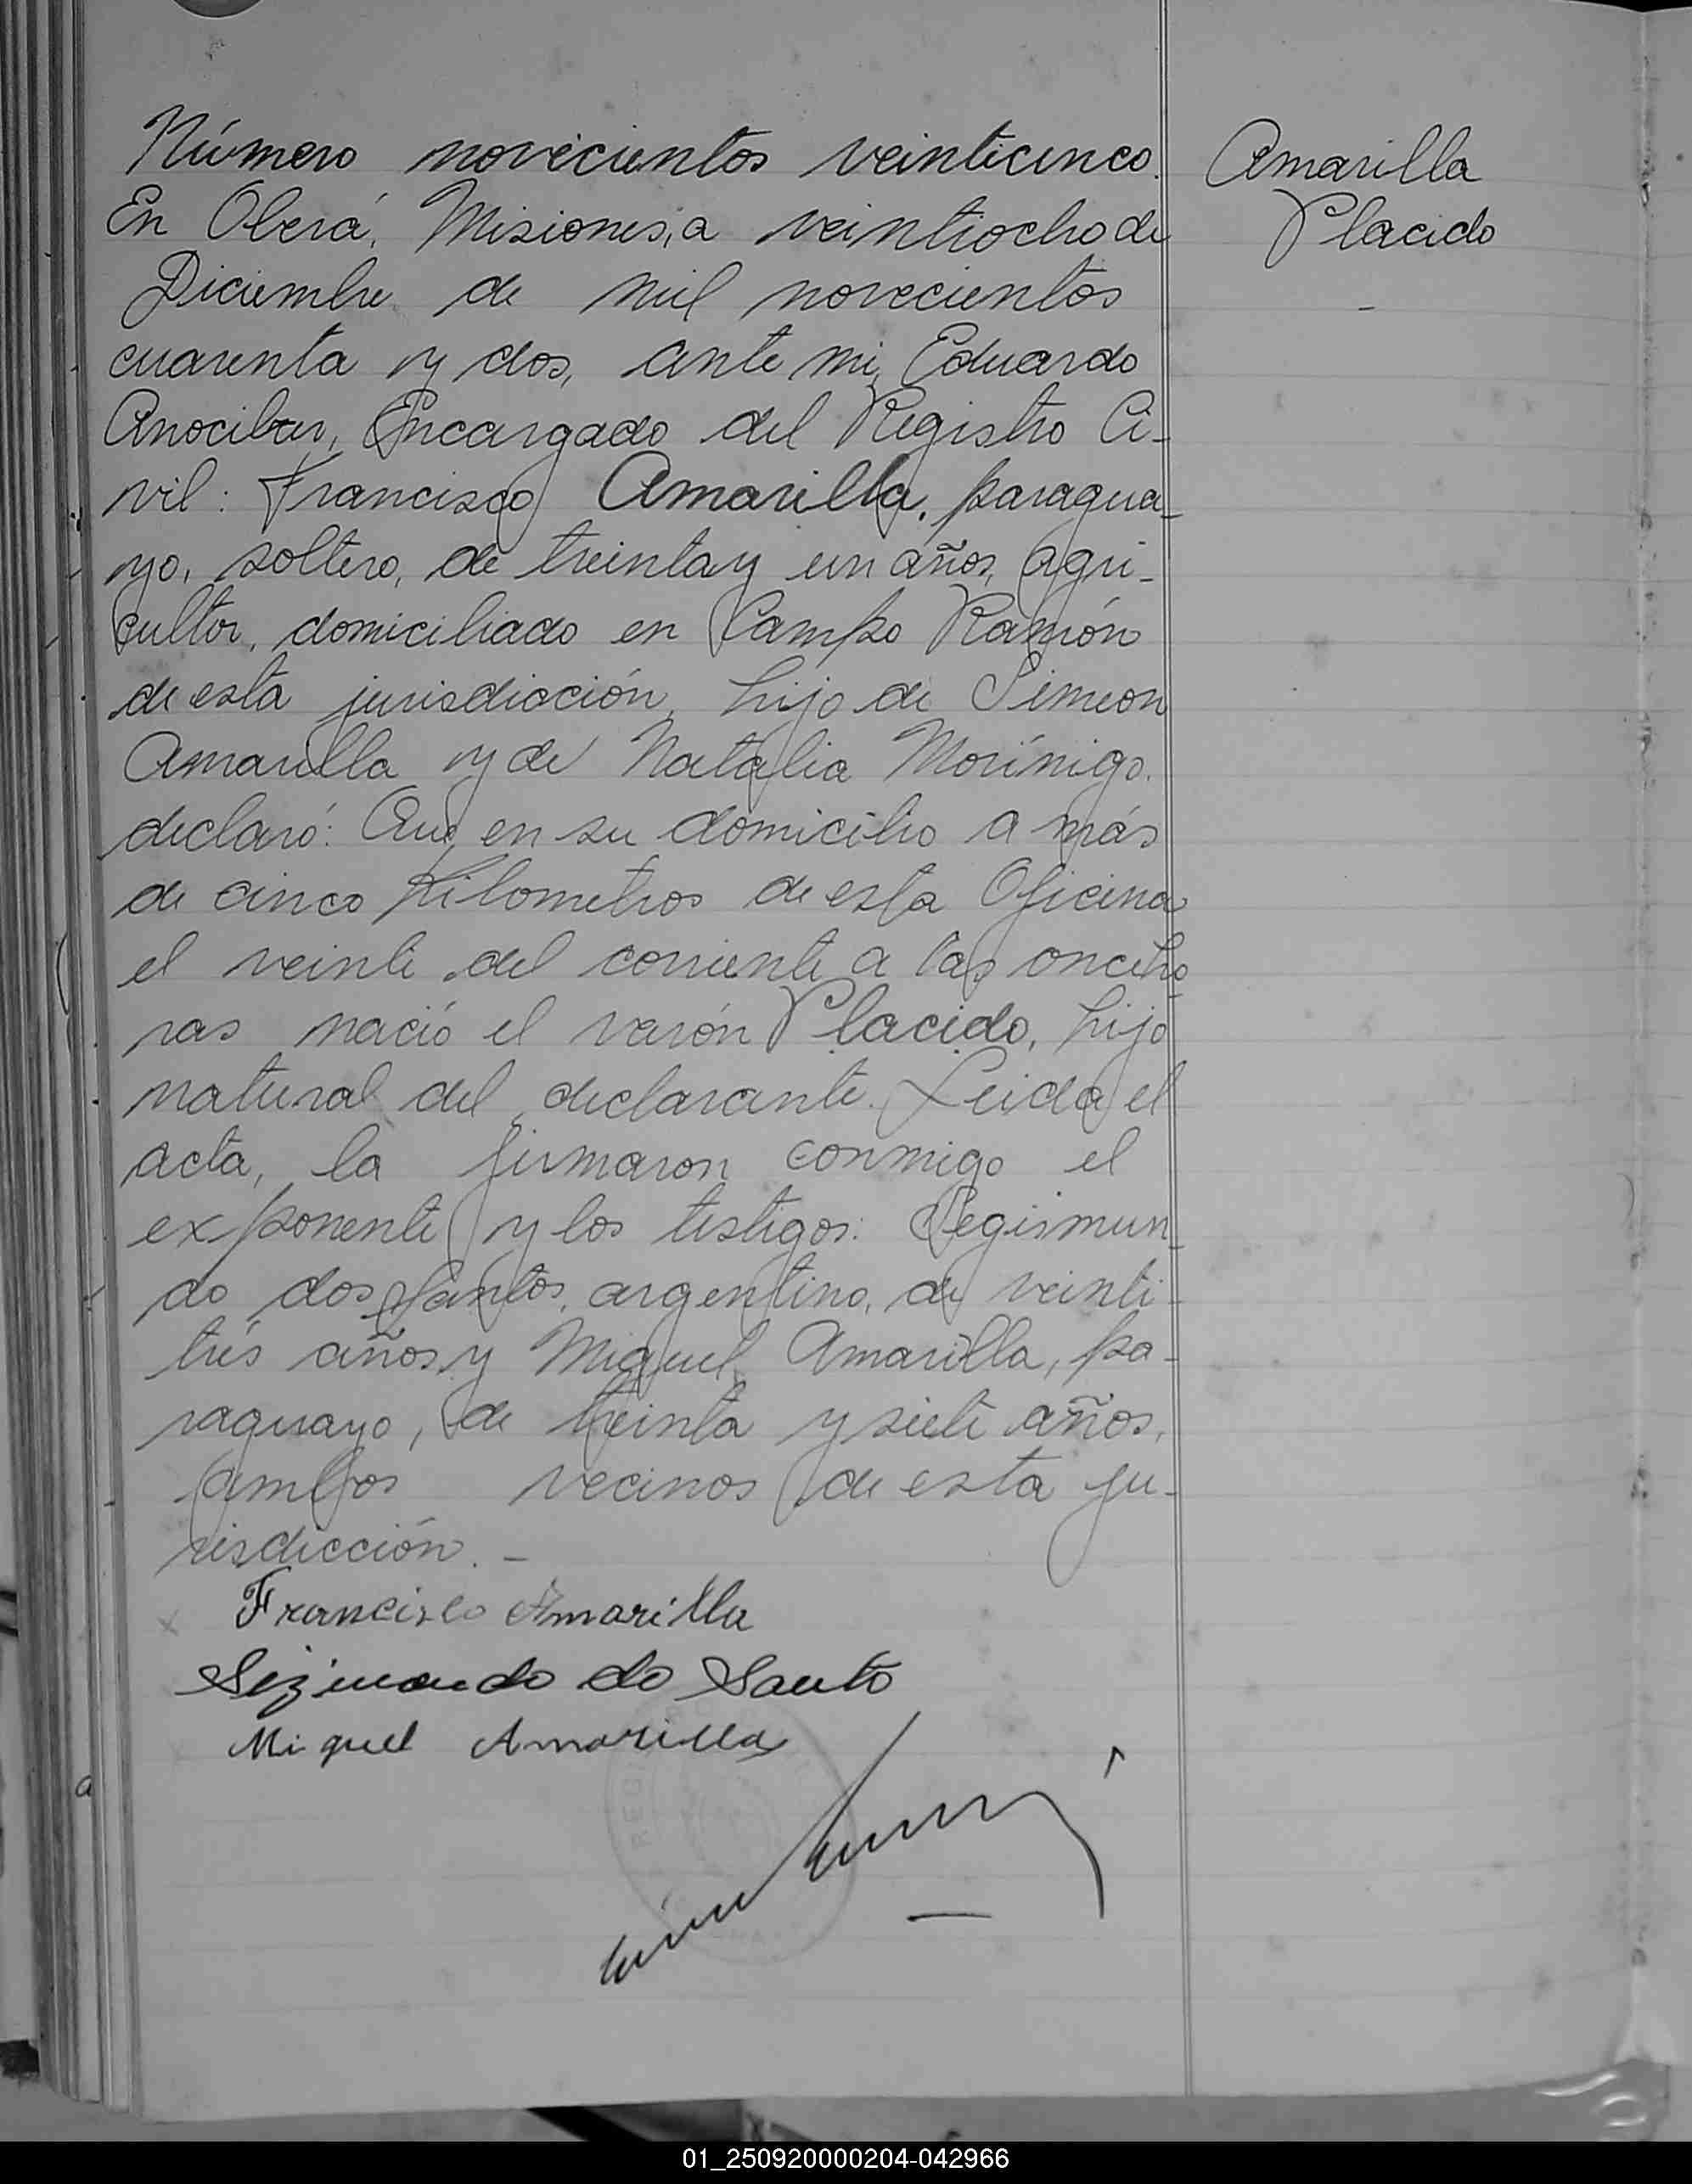 Número novecientos veinticinco.
En Oberá, Misiones, a veintiocho de
Diciembre de mil novecientos
cuarenta y dos, ante mi, Eduardo
Anocibar, Encargado del Registro Ci-
vil: Francisco Amarilla, paragua-
yo, soltero, de treinta y un años, agri-
cultor, domiciliado en Campo Ramón
de esta jurisdicción, hijo de Simeon
Amarilla y de Natalia Morínigo.
declaró: Que en su domicilio a más
de cinco Kilometros de esta Oficina
el veinte del corriente a las once ho
ras nació el varón Placido, hijo
natural del declarante. Leida el
acta, la firmaron conmigo el
exponente y los testigos: Segismun-
do dos Santos, argentino, de veinti-
trés años y Miguel Amarilla, pa-
raguayo, de treinta y siete años,
ambos vecinos de esta ju-
risdicción. -
Francisco Amarilla
Sezimando do Santo
Miguel Amarilla
Amarilla
Placido
-
REGI
a
01_250920000204-042966